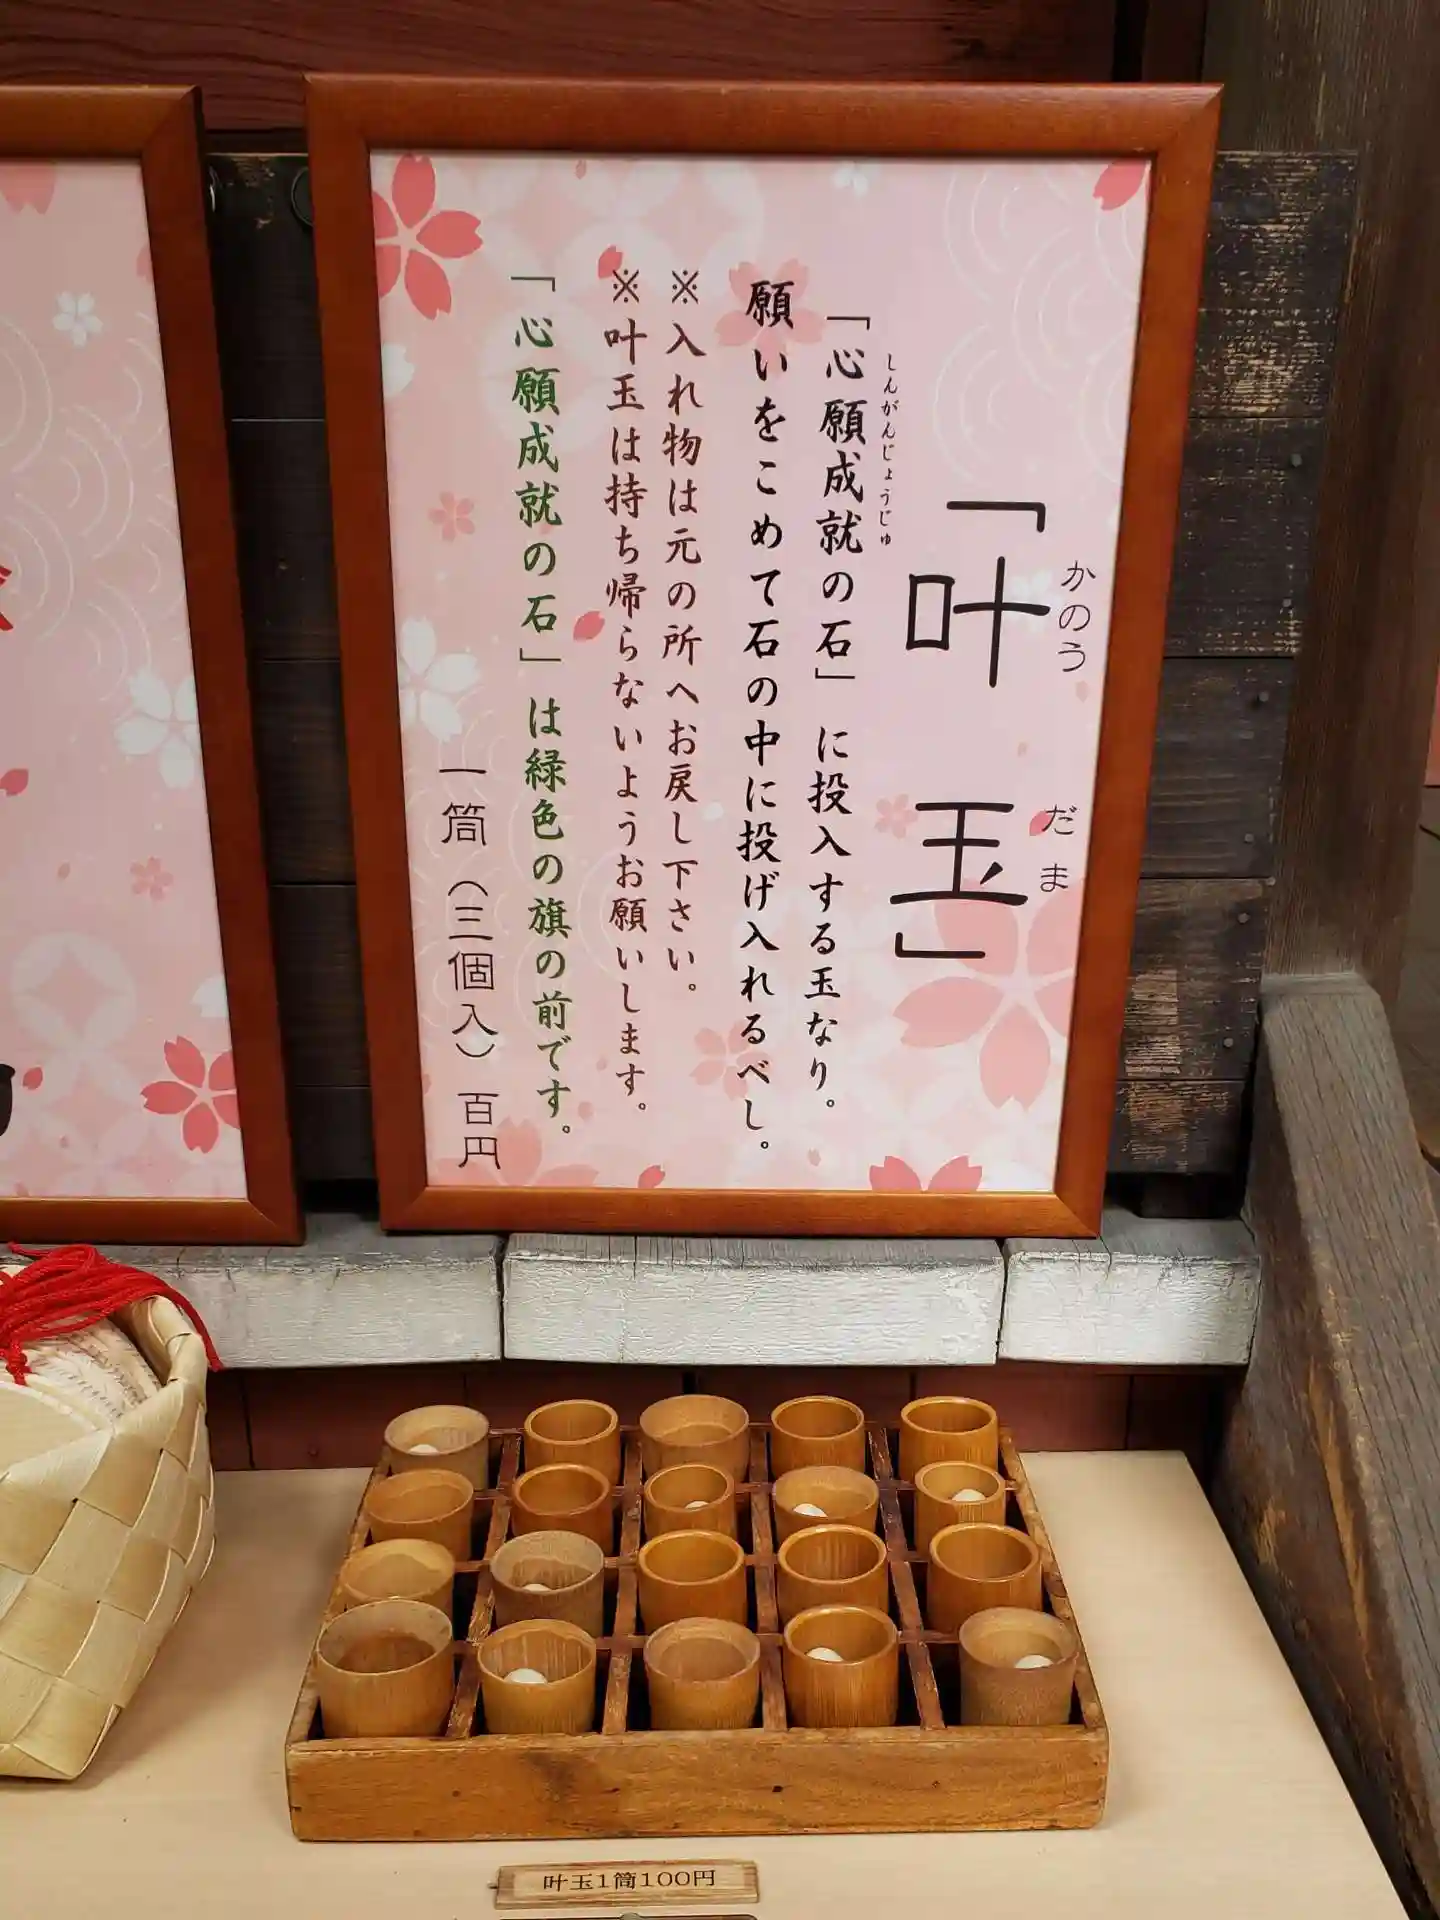 「叶玉」
かのうだま
「心願成就の石」に投入する玉なり。
しんがんじょうじゅ
願いをこめて石の中に投げ入れるべし。
※入れ物は元の所へお戻し下さい。
※叶玉は持ち帰らないようお願いします。
「心願成就の石」は緑色の旗の前です。
一筒（三個入）百円
叶玉1筒100円